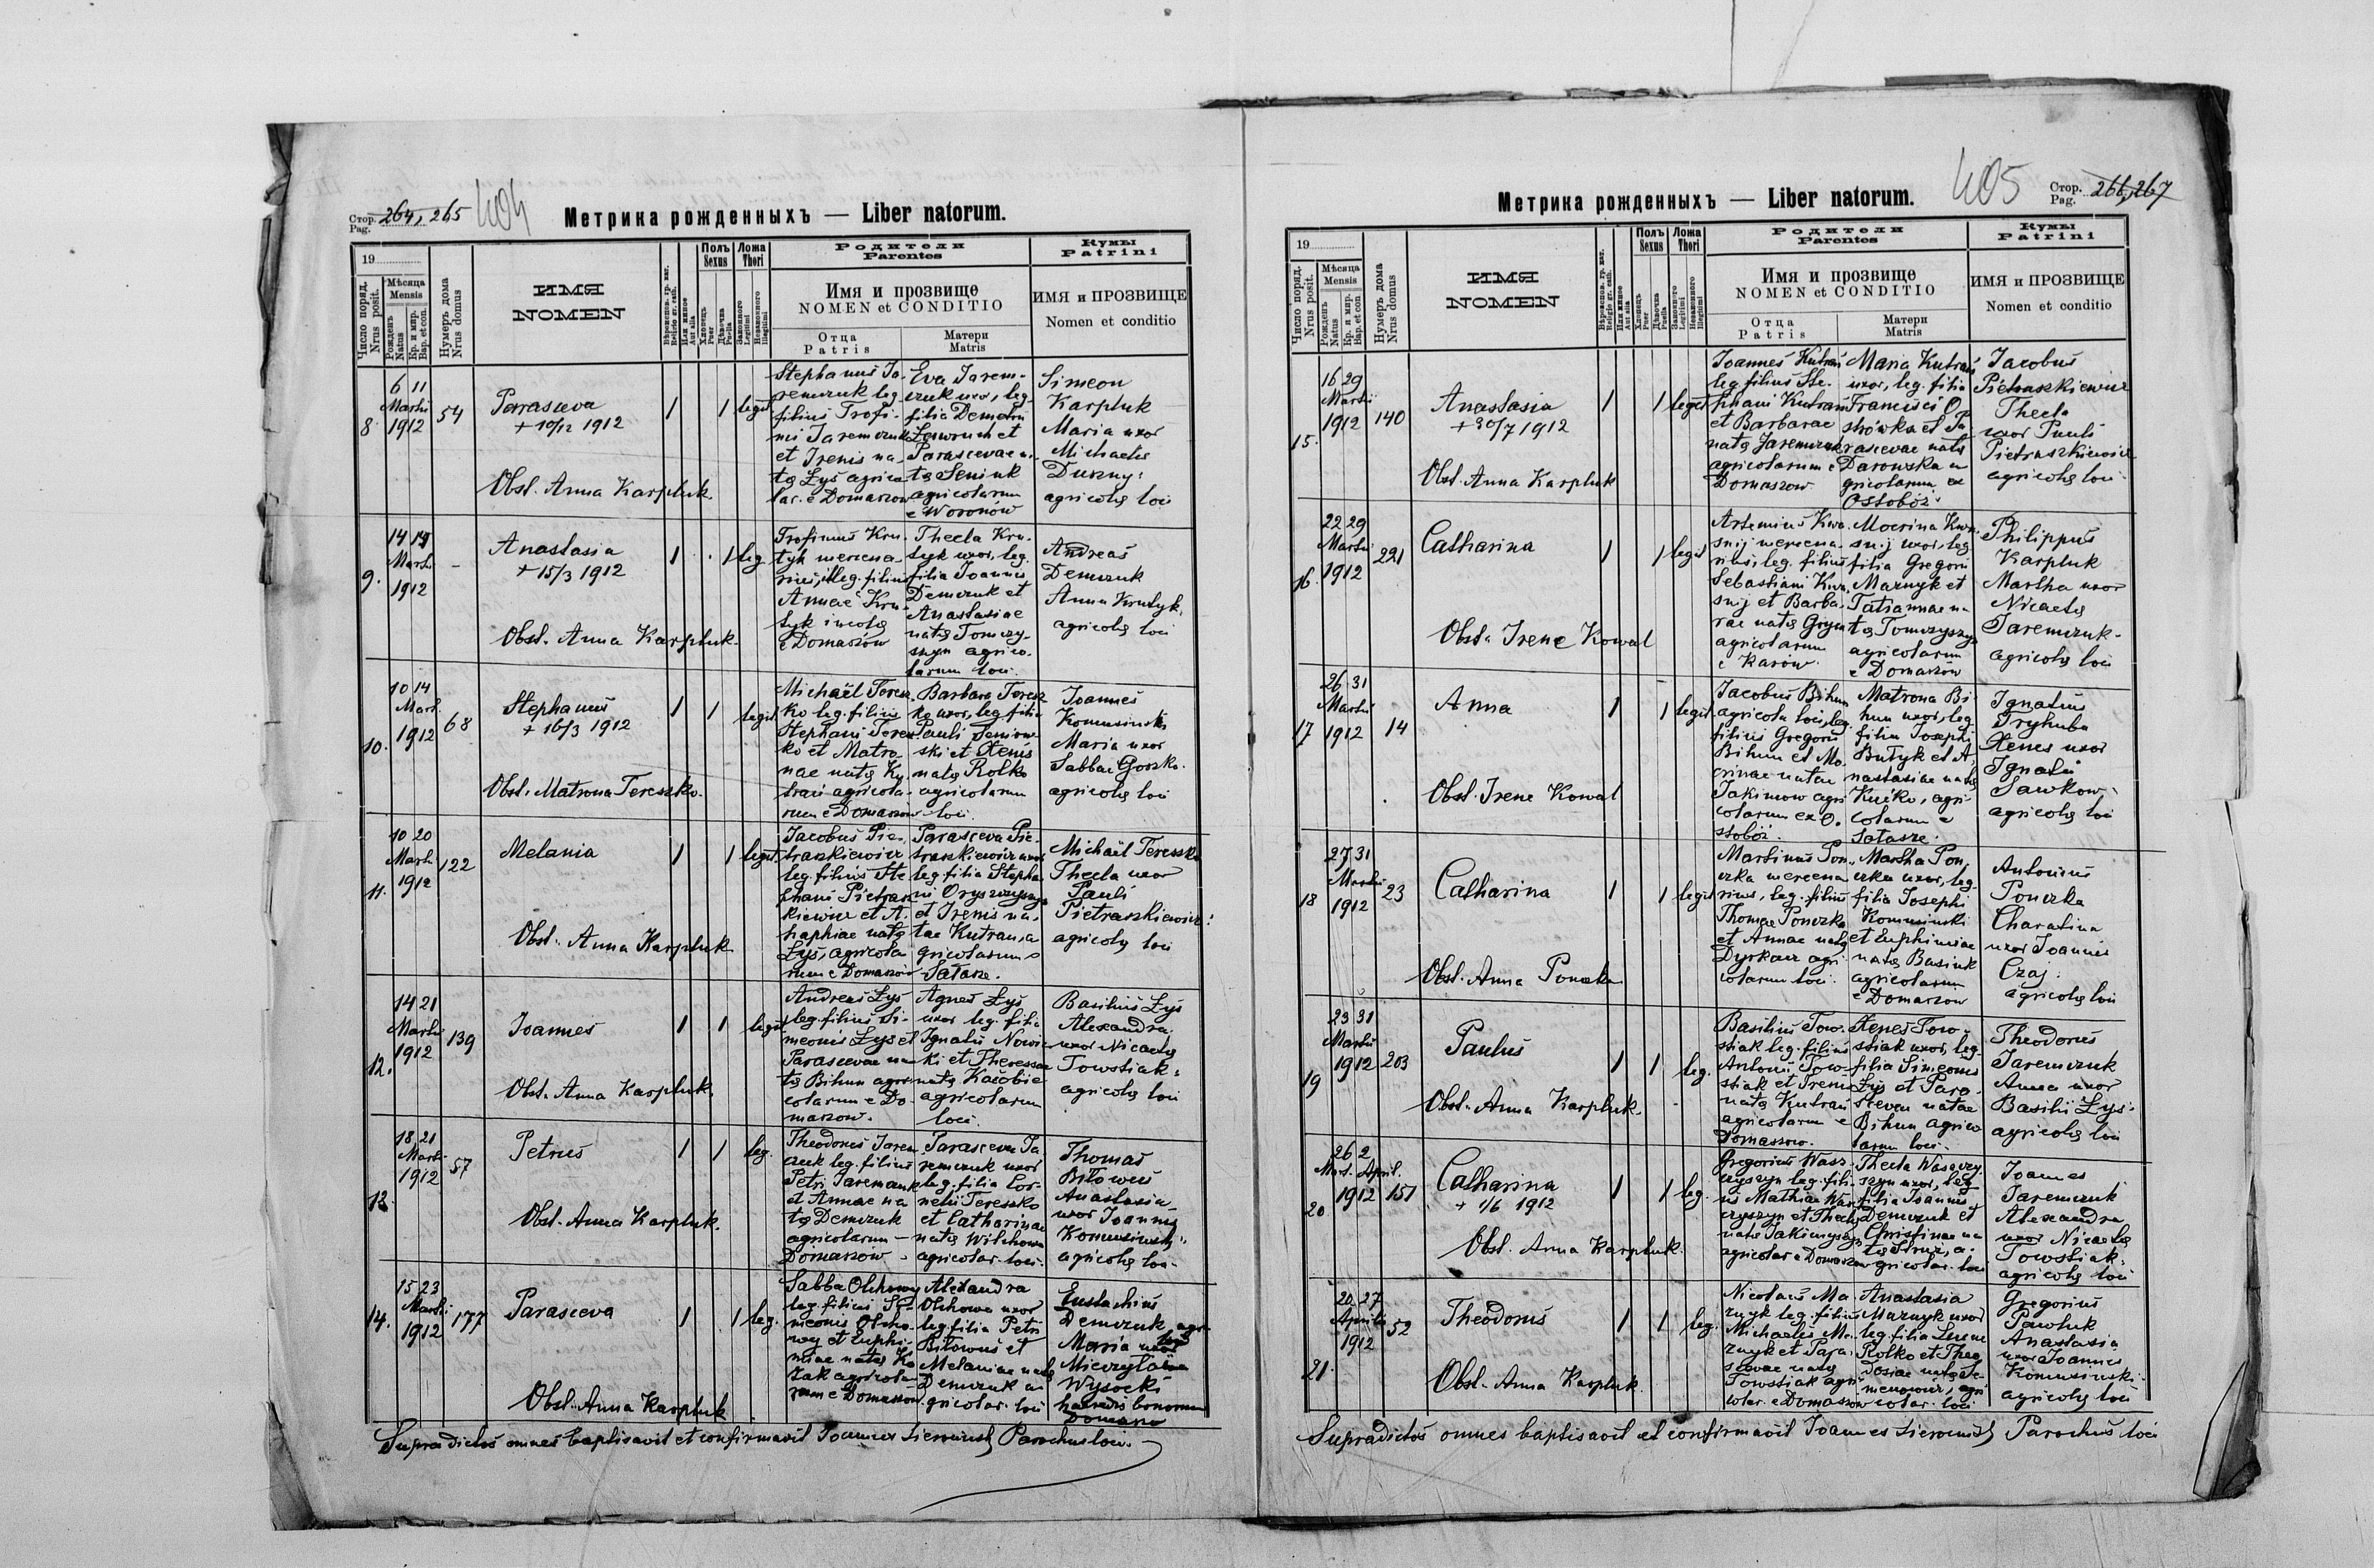 Стор. Pag. 264, 265
404
Метрика рожденныхъ — Liber natorum.
19
Число поряд. Nrus posit.
Мѣсяца Mensis
Рожденъ Natus
Кр. и мир. Bap. et con.
Нумеръ дома Nrus domus
ИМЯ
NOMEN
Вѣроисповѣд. гр. кат. Religio gr. cath.
Или иное Aut alia
Полъ Sexus
Хлопецъ Puer
Дѣвочка Puella
Ложа Thori
Законного Legitimi
Незаконного Illegitimi
Родители
Parentes
Имя и прозвище
NOMEN et CONDITIO
Отца
Patris
Матери
Matris
Кумы
Patrini
ИМЯ и ПРОЗВИЩЕ
Nomen et conditio
8.
6 11
Martii
1912
54
Parasceva
+ 10/12 1912
Obst. Anna Karpluk
1 1 legit.
Stephanus Ja-
remczuk leg.
filius Trofi-
mi Jaremczuk
et Irenis na-
tę Łyś agrico-
lar. e Domaszow
Eva Jarem-
czuk uxor, leg.
filia Demetrii
Ławruch et
Parascevae n.
tę Seniuk
agricolarum
e Woronów
Simeon
Karpluk
Maria uxor
Michaelis
Duzny:
agricolę loci
9.
14 14
Martii
1912
-
Anastasia
+ 15/3 1912
Obst. Anna Karpluk.
1 1 leg.
Trofimus Kru-
tyk mercena-
rius, illeg. filius
Annae Kru-
tyk incolę
e Domaszów
Thecla Kru-
tyk uxor, leg.
filia Joannis
Demczuk et
Anastasiae
natę Tomczy-
szyn agrico-
larum loci.
Andreas
Demczuk
Anna Krutyk:
agricolę loci
10.
10 14
Mart.
1912
68
Stephanus
+ 16/3 1912
Obst. Matrona Tereszko.
1 1 legit.
Michaël Teresz-
ko leg. filius
Stephani Teresz-
ko et Matro-
nae natę Ku-
trań agricola-
rum e Domaszow
Barbara Teresz
ko uxor, leg filia
Pauli Seniow-
ski et Xenis
natę Rolko
agricolarum
loci.
Joannes
Komusinski
Maria uxor
Sabbae Gorzko.
agricolę loci
11.
10 20
Martii
1912
122
Melania
Obst. Anna Karpluk
1 1 legit.
Jacobus Pie-
traszkiewicz
leg. filius Ste
phani Pietrasz
kiewicz et A-
haphiae natę
Łyś, agricola
rum e Domaszów
Parasceva Pie-
traszkiewicz uxor
leg filia Stepha
ni Oryszczyszyn
et Irenis na-
tae Kutrań, a
gricolarum e
Sałasze.
Michaël Tereszko
Thecla uxor
Pauli
Pietraszkiewicz:
agricolę loci
12.
14 21
Martii
1912
139
Joannes
Obst. Anna Karpluk.
1 1 legit.
Andreas Łyś
leg. filius Si-
meonis Łyś et
Parascevae na-
tę Bihun agri
colarum e Do-
maszow.
Agnes Łyś
uxor leg. filia
Ignatii Nowic
ki et Theressae
natę Kačobie
agricolarum
loci.
Basilius Łyś
Alexandra
uxor Nicaetę
Towstiak:
agricolę loci
13.
18 21
Martii
1912
57
Petrus
Obst. Anna Karpluk.
1 1 leg.
Theodorus Jarem
czuk leg. filius
Petri Jaremczuk
et Annae na
tę Demczuk
agricolarum
Domaszów
Parasceva Ja
remczuk uxor
leg. filia Cor-
nelii Tereszko
et Catharinae
natę Wilchowa
agricolar. loci.
Thomas
Biłoweś
Anastasia
uxor Joannis
Komusinski:
agricolę loci
14.
15 23
Martii
1912
177
Parasceva
Obst. Anna Karpluk
1 1 leg.
Sabba Olchowy
leg. filius Si-
meonis Olcho-
wy et Euphi-
miae natę Ko
zak agricola
rum e Domaszow
Alexandra
Olchowa uxor
leg filia Petri
Biłoweś et
Melaniae natę
Demczuk a
gricolar. loci
Eustachius
Demczuk
Maria uxor
Wysocki
haeredis bonorum
Supradictos omnes baptisavit et confirmavit Joannes Parochus loci.
Стор. Pag. 266, 267
405
Метрика рожденныхъ — Liber natorum.
19
Число поряд. Nrus posit.
Мѣсяца Mensis
Рожденъ Natus
Кр. и мир. Bap. et con.
Нумеръ дома Nrus domus
ИМЯ
NOMEN
Вѣроисповѣд. гр. кат. Religio gr. cath.
Или иное Aut alia
Полъ Sexus
Хлопецъ Puer
Дѣвочка Puella
Ложа Thori
Законного Legitimi
Незаконного Illegitimi
Родители
Parentes
Имя и прозвище
NOMEN et CONDITIO
Отца
Patris
Матери
Matris
Кумы
Patrini
ИМЯ и ПРОЗВИЩЕ
Nomen et conditio
15.
16 29
Martii
1912
140
Anastasia
+ 30/7 1912
Obst. Anna Karpluk
1 1 legit
Joannes Kutrań
leg. filius Ste-
phani Kutrań
et Barbarae
natę Jaremczuk
agricolarum e
Domaszow
Maria Kutrań
uxor, leg. filia
Francisci O
strówka et Pa
rascevae natę
Darowska a
gricolarum ex
Ostobóż.
Jacobus
Pietraszkiewicz
Thecla
uxor Pauli
Pietraszkiewicz
agricolę loci
16.
22 29
Martii
1912
221
Catharina
Obst. Irene Kowal
1 1 legit
Artemius Kwa-
snij mercena-
rius, leg. filius
Sebastiani Kwa-
snij et Barba-
rae natę
agricolarum
e Karów.
Mocrina Kwa-
snij uxor, leg
filia Gregorii
Maznyk et
Tatiannae na
tę Tomczyszyn
agricolarum
e Domaszów
Philippus
Karpluk
Martha uxor
Nicaetę
Jaremczuk-
agricolę loci
17
26 31
Martii
1912
14
Anna
Obst. Irene Kowal
1 1 legit.
Jacobus Bihun
agricola loci, leg.
filius Gregorii
Bihun et Mo-
crinae natae
Jakimow agri
colarum ex O-
stobóż.
Matrona Bi
hun uxor, leg
filia Josephi
Butyk et A
nastasiae natę
Kućko, agri-
colarum e
Sałasze.
Ignatius
Tryhuba
Xenes uxor
Ignatii
Sawkow:
agricolę loci
18
27 31
Martii
1912
23
Catharina
Obst. Anna Ponczka
1 1 legit
Martinus Pon-
czka mercena
rius, leg. filius
Thomae Ponczka
et Annae natę
Dyrkacz agri
colarum loci.
Martha Pon-
czka uxor, leg-
filia Josephi
Komusinski
et Euphimiae
natę Basiuk
agricolarum
e Domaszow
Antonius
Ponczka
Charatina
uxor Joannis
Czaj:
agricolę loci
19
23 31
Martii
1912
203
Paulus
Obst. Anna Karpluk.
1 1 leg.
Basilius Tow-
stiak leg. filius
Antonii Tow-
stiak et Irenis
natę Kutrań
agricolarum e
Domaszow.
Xenes Tow-
stiak uxor, leg-
filia Simeonis
Łyś et Para-
scevae natae
Bihun agrico
larum loci.
Theodorus
Jaremczuk
Anna uxor
Basilii Łyś:
agricolę loci
20
26 2
Mart. April.
1912
151
Catharina
+ 1/6 1912
Obst. Anna Karpluk.
1 1 leg.
Gregorius Wasz-
czyszyn leg. fili-
us Mathiae Wasz
czyszyn et Theclę
natę Jakimczyszyn
agricolar e Domaszow
Thecla Waszczy
szyn uxor, leg
filia Joannis
Demczuk et
Christinae na
tę Struż, a-
gricolar. loci
Joannes
Jaremczuk
Alexandra
uxor Nicaetę
Towstiak:
agricolę loci
21.
20 27
Aprilis
1912
52
Theodorus
Obst. Anna Karpluk
1 1 leg.
Nicolaus Ma-
znyk leg. filius
Michaelis Ma-
znyk et Para-
scevae natę
Towstiak agri
colar. e Domaszow
Anastasia
Maznyk uxor
leg. filia
Rolko et Theo
dosiae natę Se-
menowicz, agri
colar. loci
Gregorius
Pawluk
Anastasia
uxor Joannis
Komusinski-
agricolę loci
Supradictos omnes baptisavit et confirmavit Joannes Parochus loci